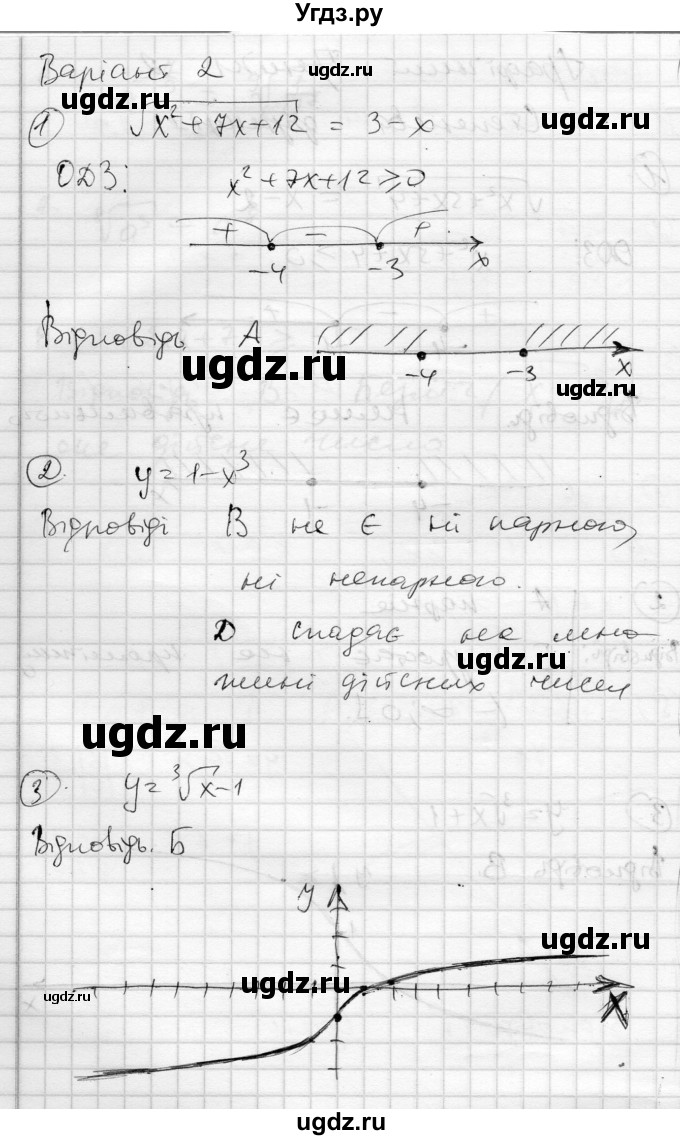 Угдз.ру
Варіант 2
ugdz.ru
ugdz.ru
1) √x²+7x+12 = 3-x
ugdz.ru
ОДЗ: x²+7x+12 ≥ 0
+ - +
-4 -3 x
Відповідь А
ugdz.ru
-4 -3 x
ugdz.ru
2) y = 1-x³
Відповіді В не є ні парного,
ні непарного.
Д спадає на мно-
ugdz.ru
жині дійсних чисел
ugdz.ru
3) y = ³√x-1
Відповідь. Б
y
ugdz.ru
ugdz.ru
ugdz.ru
x
ugdz.ru
ugdz.ru